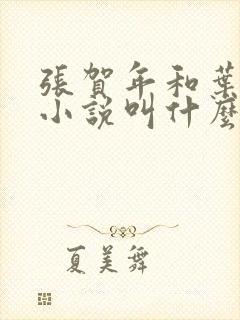 張賀年和葉
小說叫什麼
夏美舞